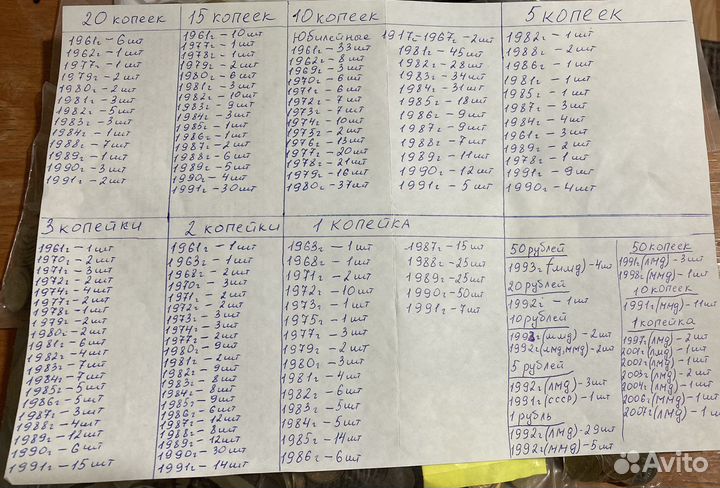 20 копеек
1961г - 6шт
1962г - 1шт
1977г - 1шт
1979г - 2шт
1980г - 2шт
1981г - 3шт
1982г - 5шт
1983г - 3шт
1984г - 1шт
1988г - 7шт
1989г - 1шт
1990г - 3шт
1991г - 2шт
15 копеек
1961г - 10шт
1977г - 1шт
1978г - 1шт
1979г - 2шт
1980г - 6шт
1981г - 3шт
1982г - 10шт
1983г - 9шт
1984г - 3шт
1985г - 1шт
1986г - 1шт
1987г - 2шт
1988г - 6шт
1989г - 5шт
1990г - 4шт
1991г - 30шт
10 копеек
Юбилейные 1917г-1967г - 2шт
1961г - 33шт
1962г - 8шт
1969г - 3шт
1970г - 6шт
1971г - 6шт
1972г - 7шт
1973г - 7шт
1974г - 10шт
1975г - 2шт
1976г - 13шт
1977г - 20шт
1978г - 21шт
1979г - 16шт
1980г - 37шт
1981г - 45шт
1982г - 28шт
1983г - 34шт
1984г - 31шт
1985г - 18шт
1986г - 9шт
1987г - 9шт
1988г - 7шт
1989г - 11шт
1990г - 12шт
1991г - 5шт
5 копеек
1982г - 1шт
1988г - 2шт
1986г - 1шт
1981г - 1шт
1985г - 1шт
1987г - 3шт
1984г - 4шт
1961г - 3шт
1989г - 2шт
1978г - 1шт
1991г - 9шт
1990г - 4шт
3 копейки
1961г - 1шт
1970г - 2шт
1971г - 3шт
1972г - 2шт
1974г - 4шт
1977г - 2шт
1978г - 1шт
1979г - 2шт
1980г - 2шт
1981г - 6шт
1982г - 4шт
1983г - 7шт
1984г - 7шт
1985г - 5шт
1986г - 5шт
1987г - 3шт
1988г - 4шт
1989г - 12шт
1990г - 6шт
1991г - 15шт
2 копейки
1961г - 1шт
1963г - 1шт
1968г - 2шт
1970г - 3шт
1971г - 2шт
1972г - 2шт
1973г - 3шт
1974г - 3шт
1977г - 2шт
1980г - 9шт
1981г - 2шт
1982г - 9шт
1983г - 8шт
1984г - 8шт
1985г - 9шт
1986г - 6шт
1987г - 12шт
1988г - 8шт
1989г - 12шт
1990г - 30шт
1991г - 14шт
1 копейка
1963г - 1шт
1968г - 1шт
1971г - 2шт
1972г - 10шт
1973г - 1шт
1975г - 1шт
1977г - 3шт
1979г - 2шт
1980г - 3шт
1981г - 4шт
1982г - 6шт
1983г - 5шт
1984г - 5шт
1985г - 14шт
1986г - 6шт
1987г - 15шт
1988г - 25шт
1989г - 25шт
1990г - 50шт
1991г - 7шт
50 рублей
1993г (ммд) - 4шт
20 рублей
1992г - 1шт
10 рублей
(ммд) - 2шт
1992г (лмд, ммд) - 2шт
5 рублей
1992г (лмд) - 3шт
1991г (ссср) - 1шт
1 рубль
1992г (лмд) - 29шт
1992г (ммд) - 5шт
50 копеек
(лмд) - 3шт
1998г (ммд) - 1шт
10 копеек
1991г (ммд) - 11шт
1 копейка
1997г (лмд) - 2шт
2001г (лмд) - 1шт
2002г (лмд) - 1шт
2003г (лмд) - 2шт
2004г (лмд) - 1шт
2006г (ммд) - 1шт
2007г (лмд) - 1шт
Avito